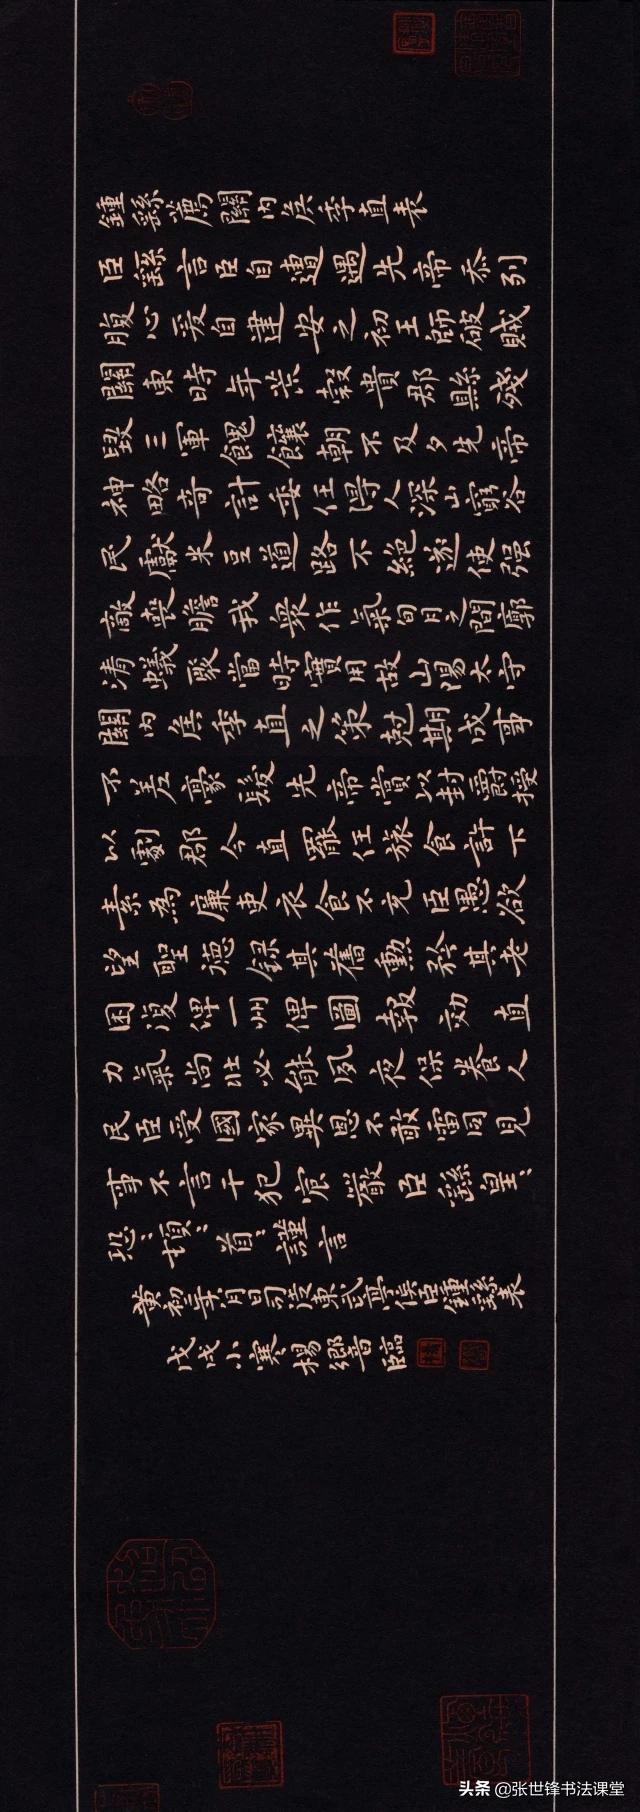 鍾繇薦關內侯季直表
臣繇言臣自遭遇先帝忝列
腹心爰自建安之初王師破賊
關東時年荒穀貴郡縣殘
毀三軍餽饟朝不及夕先帝
神略奇計委任得人深山窮谷
民獻米豆道路不絕遂使强
敵喪膽我衆作氣旬月之間廓
清蟻聚當時實用故山陽太守
關內侯季直之策尅期成事
不差豪髮先帝賞以封爵授
以劇郡今直罷任旅食許下
素為廉吏衣食不充臣愚欲
望聖德錄其舊勳矜其老
困復俾一州俾圖報効直
力氣尚壯必能夙夜保養人
民臣受國家異恩不敢雷同見
事不言干犯宸嚴臣繇皇、
恐、頓、首、謹言
黄初二年八月日司徒東武亭侯臣鍾繇表
戊戌小寒楊鄉晉臨
头条 @张世锋书法课堂